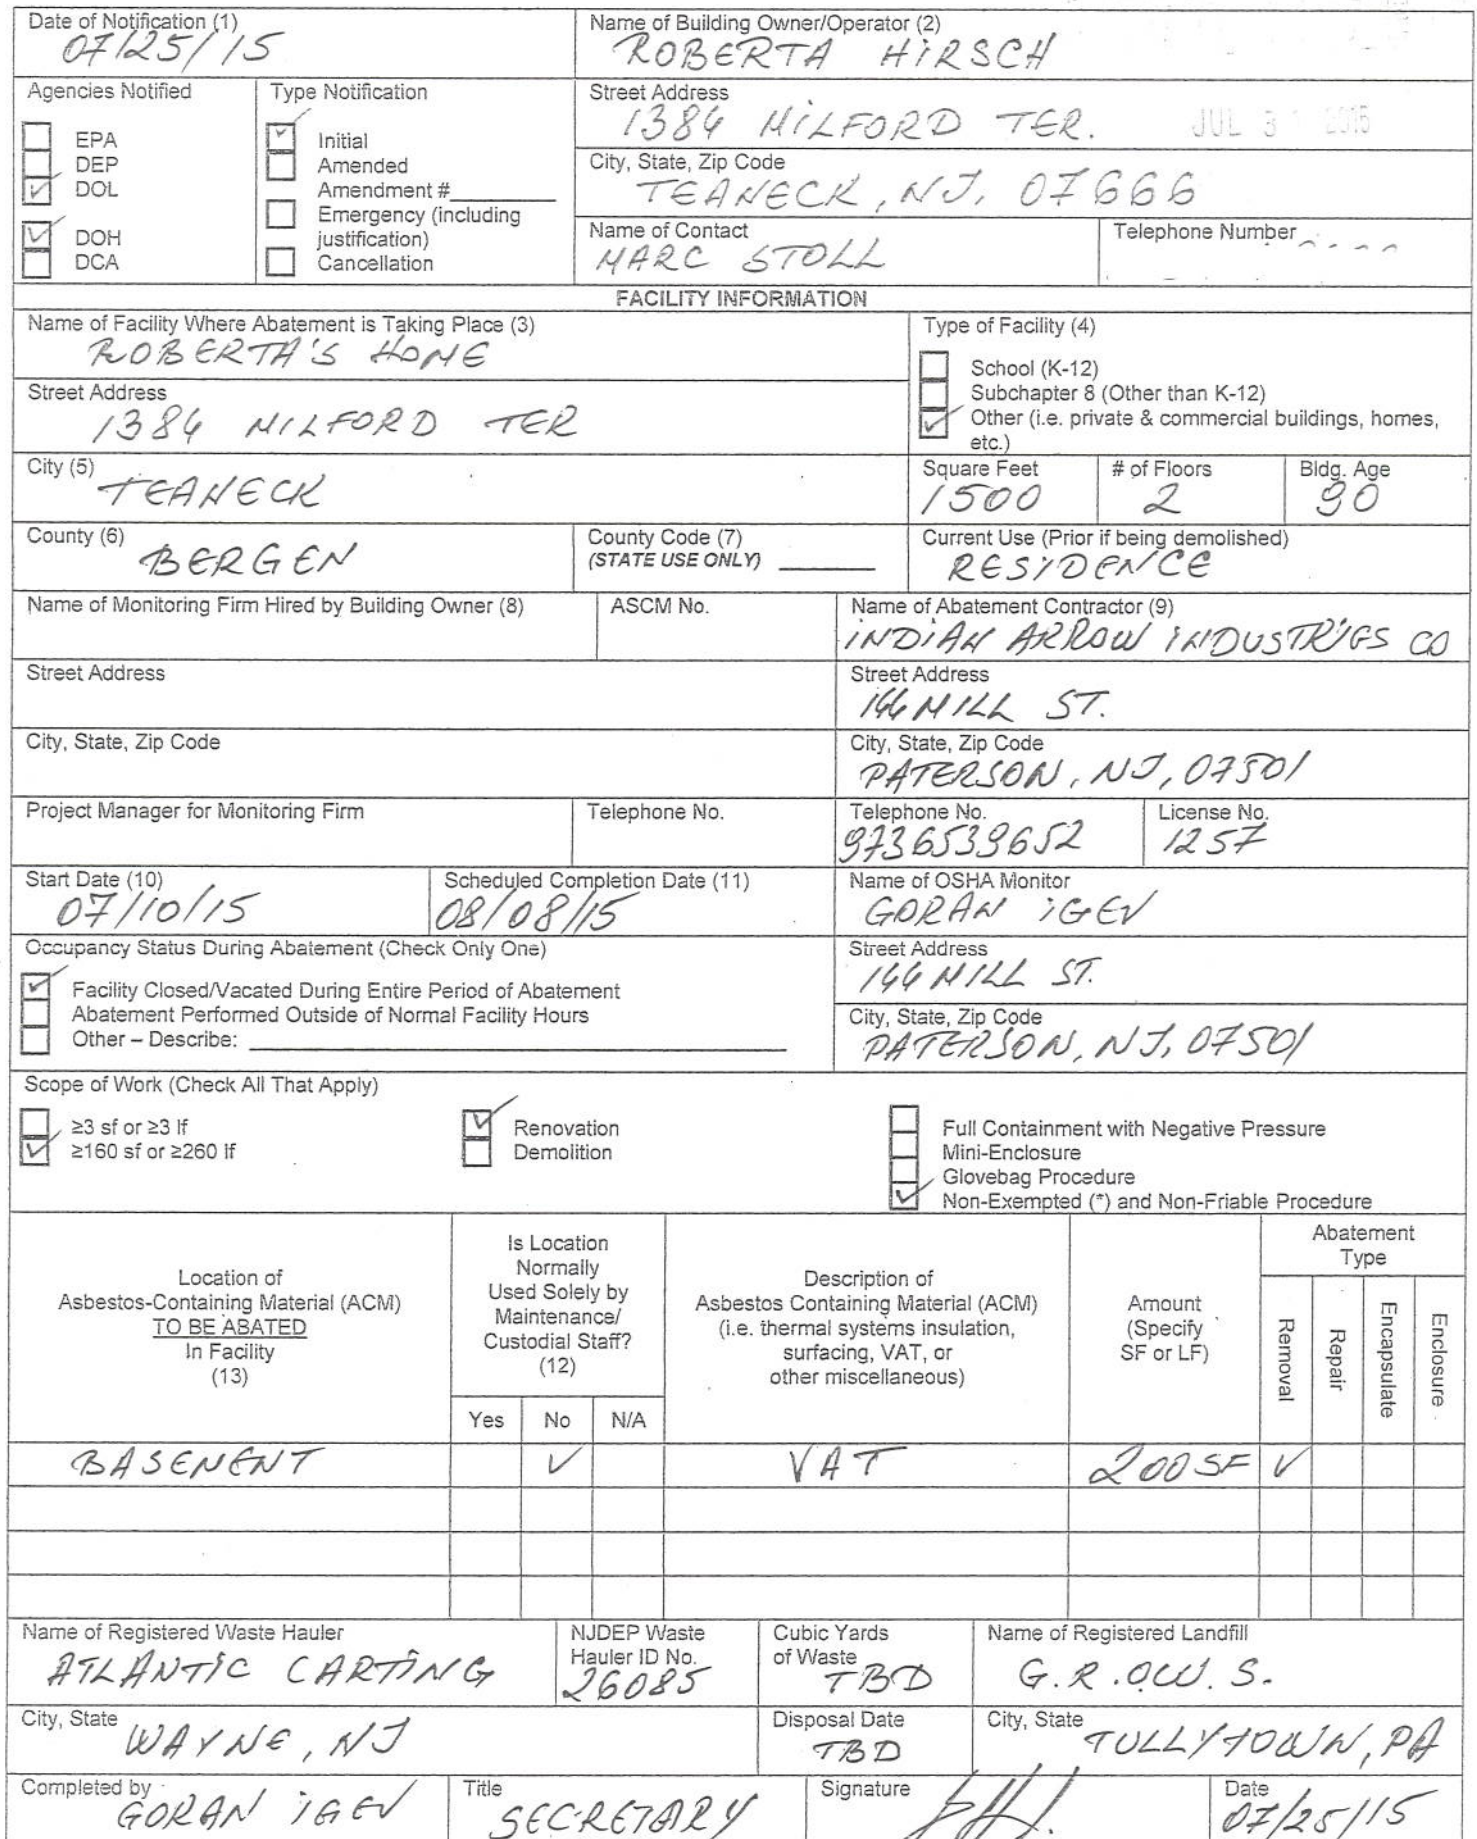 Date of Notification (1)
07/25/15
Name of Building Owner/Operator (2)
ROBERTA HIRSCH
Agencies Notified
EPA
DEP
DOL
DOH
DCA
Type Notification
Initial
Amended
Amendment #
Emergency (including
justification)
Cancellation
Street Address
1384 MILFORD TER.
JUL 3 2015
City, State, Zip Code
TEANECK, NJ, 07666
Name of Contact
MARC STOLL
Telephone Number
FACILITY INFORMATION
Name of Facility Where Abatement is Taking Place (3)
ROBERTA'S HOME
Type of Facility (4)
School (K-12)
Subchapter 8 (Other than K-12)
Other (i.e. private & commercial buildings, homes,
etc.)
Street Address
1384 MILFORD TER
City (5)
TEANECK
Square Feet
1500
# of Floors
2
Bldg. Age
90
County (6)
BERGEN
County Code (7)
(STATE USE ONLY)
Current Use (Prior if being demolished)
RESIDENCE
Name of Monitoring Firm Hired by Building Owner (8)
ASCM No.
Name of Abatement Contractor (9)
INDIAN ARROW INDUSTRIES CO
Street Address
Street Address
144 MILL ST.
City, State, Zip Code
City, State, Zip Code
PATERSON, NJ, 07501
Project Manager for Monitoring Firm
Telephone No.
Telephone No.
9736539652
License No.
1257
Start Date (10)
07/10/15
Scheduled Completion Date (11)
08/08/15
Name of OSHA Monitor
GORAN IGEV
Occupancy Status During Abatement (Check Only One)
Facility Closed/Vacated During Entire Period of Abatement
Abatement Performed Outside of Normal Facility Hours
Other – Describe:
Street Address
144 MILL ST.
City, State, Zip Code
PATERSON, NJ, 07501
Scope of Work (Check All That Apply)
≥3 sf or ≥3 lf
≥160 sf or ≥260 lf
Renovation
Demolition
Full Containment with Negative Pressure
Mini-Enclosure
Glovebag Procedure
Non-Exempted (*) and Non-Friable Procedure
Location of
Asbestos-Containing Material (ACM)
TO BE ABATED
In Facility
(13)
Is Location
Normally
Used Solely by
Maintenance/
Custodial Staff?
(12)
Yes No N/A
Description of
Asbestos Containing Material (ACM)
(i.e. thermal systems insulation,
surfacing, VAT, or
other miscellaneous)
Amount
(Specify
SF or LF)
Abatement
Type
Removal
Repair
Encapsulate
Enclosure
BASEMENT VAT 200 SF
Name of Registered Waste Hauler
ATLANTIC CARTING
NJDEP Waste
Hauler ID No.
26085
Cubic Yards
of Waste
TBD
Name of Registered Landfill
G.R.O.W.S.
City, State
WAYNE, NJ
Disposal Date
TBD
City, State
TULLYTOWN, PA
Completed by
GORAN IGEV
Title
SECRETARY
Signature
Date
07/25/15